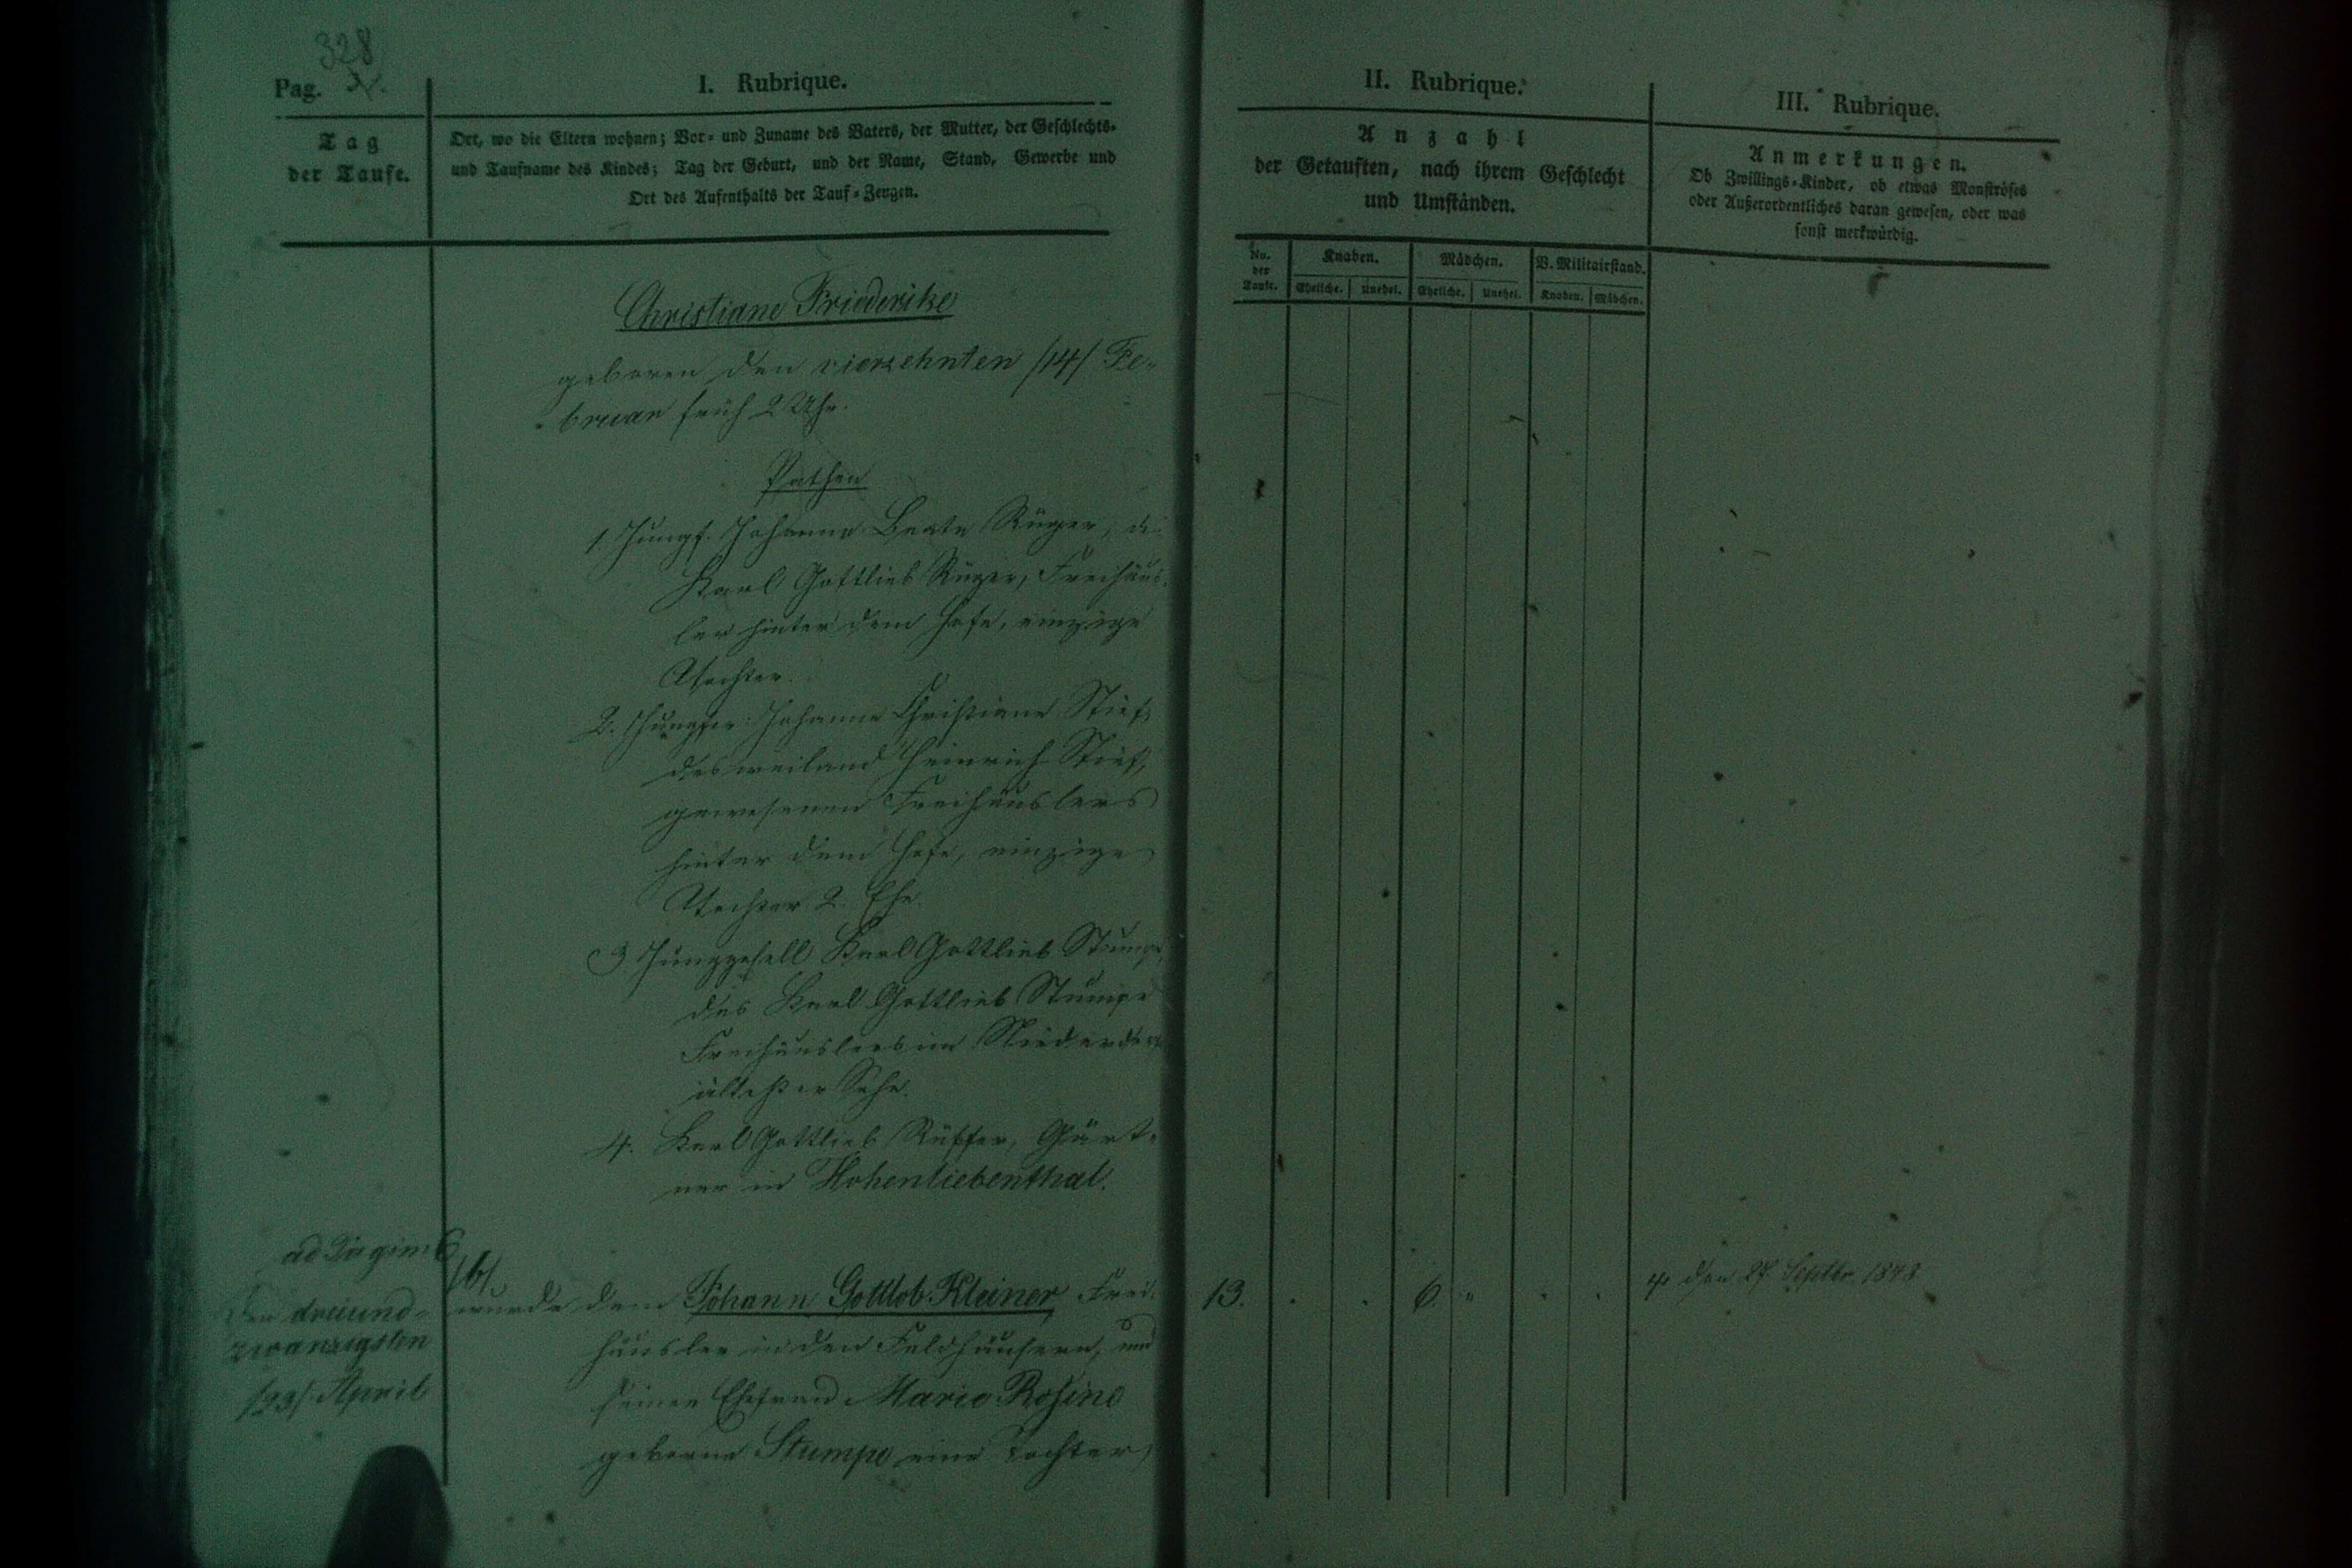 328
Pag.
I. Rubrique.
Tag
der Taufe.
Ort, wo die Eltern wohnen; Vor- und Zuname des Vaters, der Mutter, der Geschlechts-
und Taufname des Kindes; Tag der Geburt, und der Name, Stand, Gewerbe und
Ort des Aufenthalts der Tauf-Zeugen.
Christiane Friederike
geboren den vierzehnten /14/ Fe-
bruar früh 2 Uhr.
Pathen
1. Jungf. Johanne Beate Rüger,
Karl Gottlieb Rüger, Freihäus-
ler hinter dem Hofe, einzige
Tochter.
2. Jungfer Johanne Christiane Stief,
des weiland Heinrich Stief,
gewesenen Freihäuslers
hinter dem Hofe, einzige
Tochter 2. Ehe.
3 Junggesell Karl Gottlieb Stumpe,
des Karl Gottlieb Stumpe
Freihäuslers im
ältester Sohn.
4. Karl Gottlieb Rüffer, Gärt-
ner in Hohenliebenthal.
ad
den dreiund-
zwanzigsten
/23/ April
wurde dem Johann Gottlob Kleiner Frei-
häusler in den Feldhäusern, und
seiner Ehefrau Marie Rosine
geborne Stumpe eine Tochter
II. Rubrique.
Anzahl
der Getauften, nach ihrem Geschlecht
und Umständen.
No.
der
Taufe.
Knaben.
Mädchen.
V. Militairstand.
Eheliche. Unehel. Eheliche. Unehel. Knaben. Mädchen.
13. 6. "
III. Rubrique.
Anmerkungen.
Ob Zwillings-Kinder, ob etwas Monströses
oder Außerordentliches daran gewesen, oder was
sonst merkwürdig.
den 27. Septbr. 1848